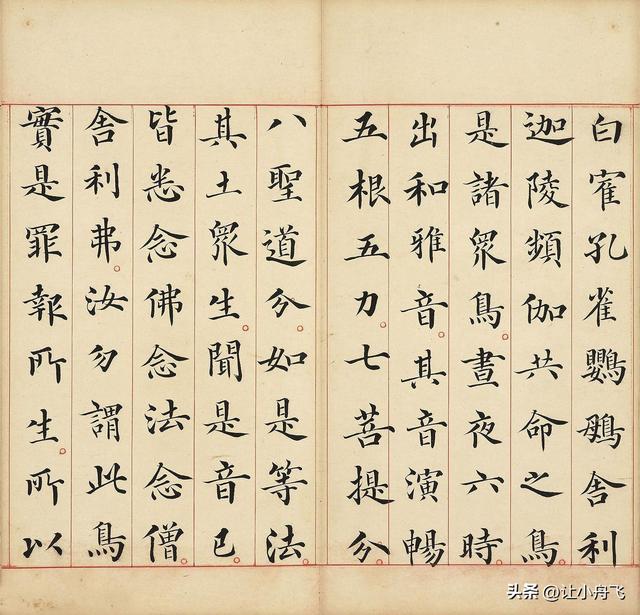 白寉孔雀鸚鵡舍利
迦陵頻伽共命之鳥。
是諸眾鳥。晝夜六時。
出和雅音。其音演暢
五根五力。七菩提分。
八聖道分。如是等法。
其土眾生。聞是音已。
皆悉念佛念法念僧。
舍利弗。汝勿謂此鳥
實是罪報所生。所以
头条 @让小舟飞